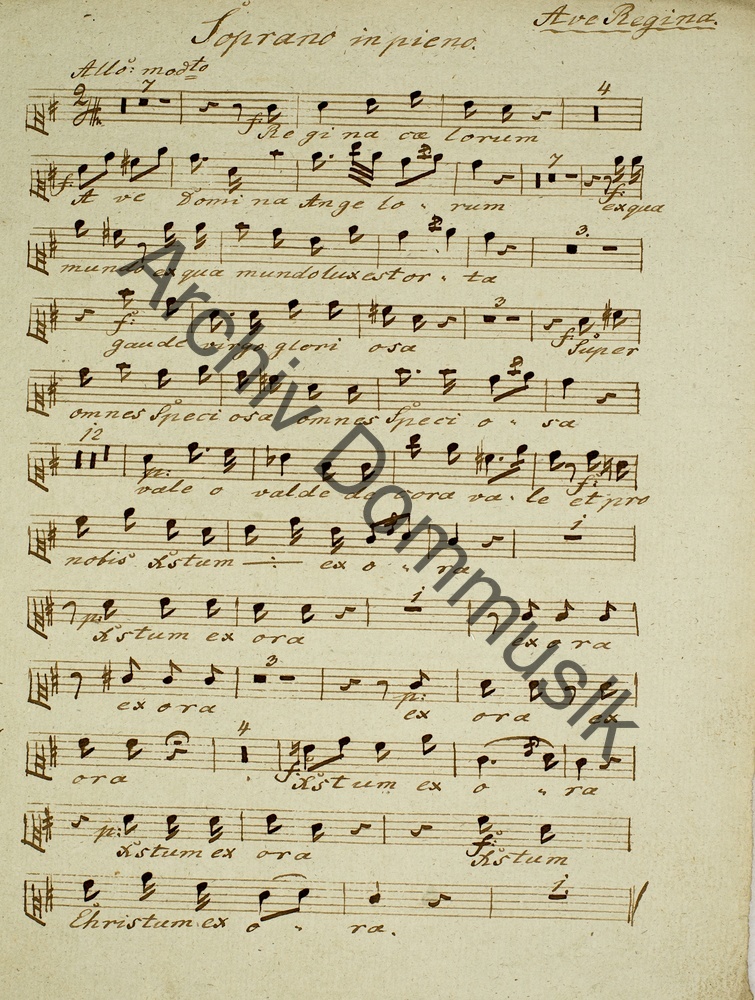 Ave Regina.
Soprano in pieno.
Allo: modto
7 4
f: Regina cœ lorum
7
f: A ve Domina Ange lo " rum f: exqua
3.
mundo ex qua mundo lux est or " ta
3
f: gaude virgo glori osa f: Super
omnes Speci osa omnes Speci o " sa
12
p: vale o valde decora va " le f: et pro
1
nobis Xstum —:— ex o " ra
1
p: Xstum ex ora ex o ra
3
ex o ra p: ex ora ex
4
ora f: Xstum ex o " ra
p: Xstum ex ora f: Xstum
1.
Christum ex o " ra.
Archiv Dommusik